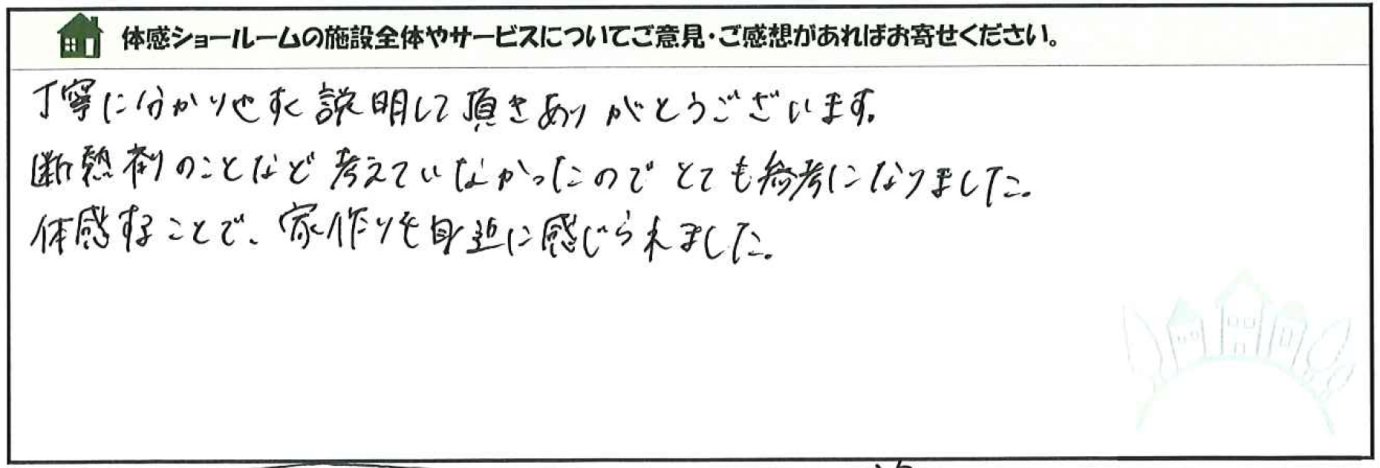 体感ショールームの施設全体やサービスについてご意見・ご感想があればお寄せください。
丁寧に分かりやすく説明して頂きありがとうございます。
断熱剤のことなど考えていなかったのでとても参考になりました。
体感することで、家作りを身近に感じられました。